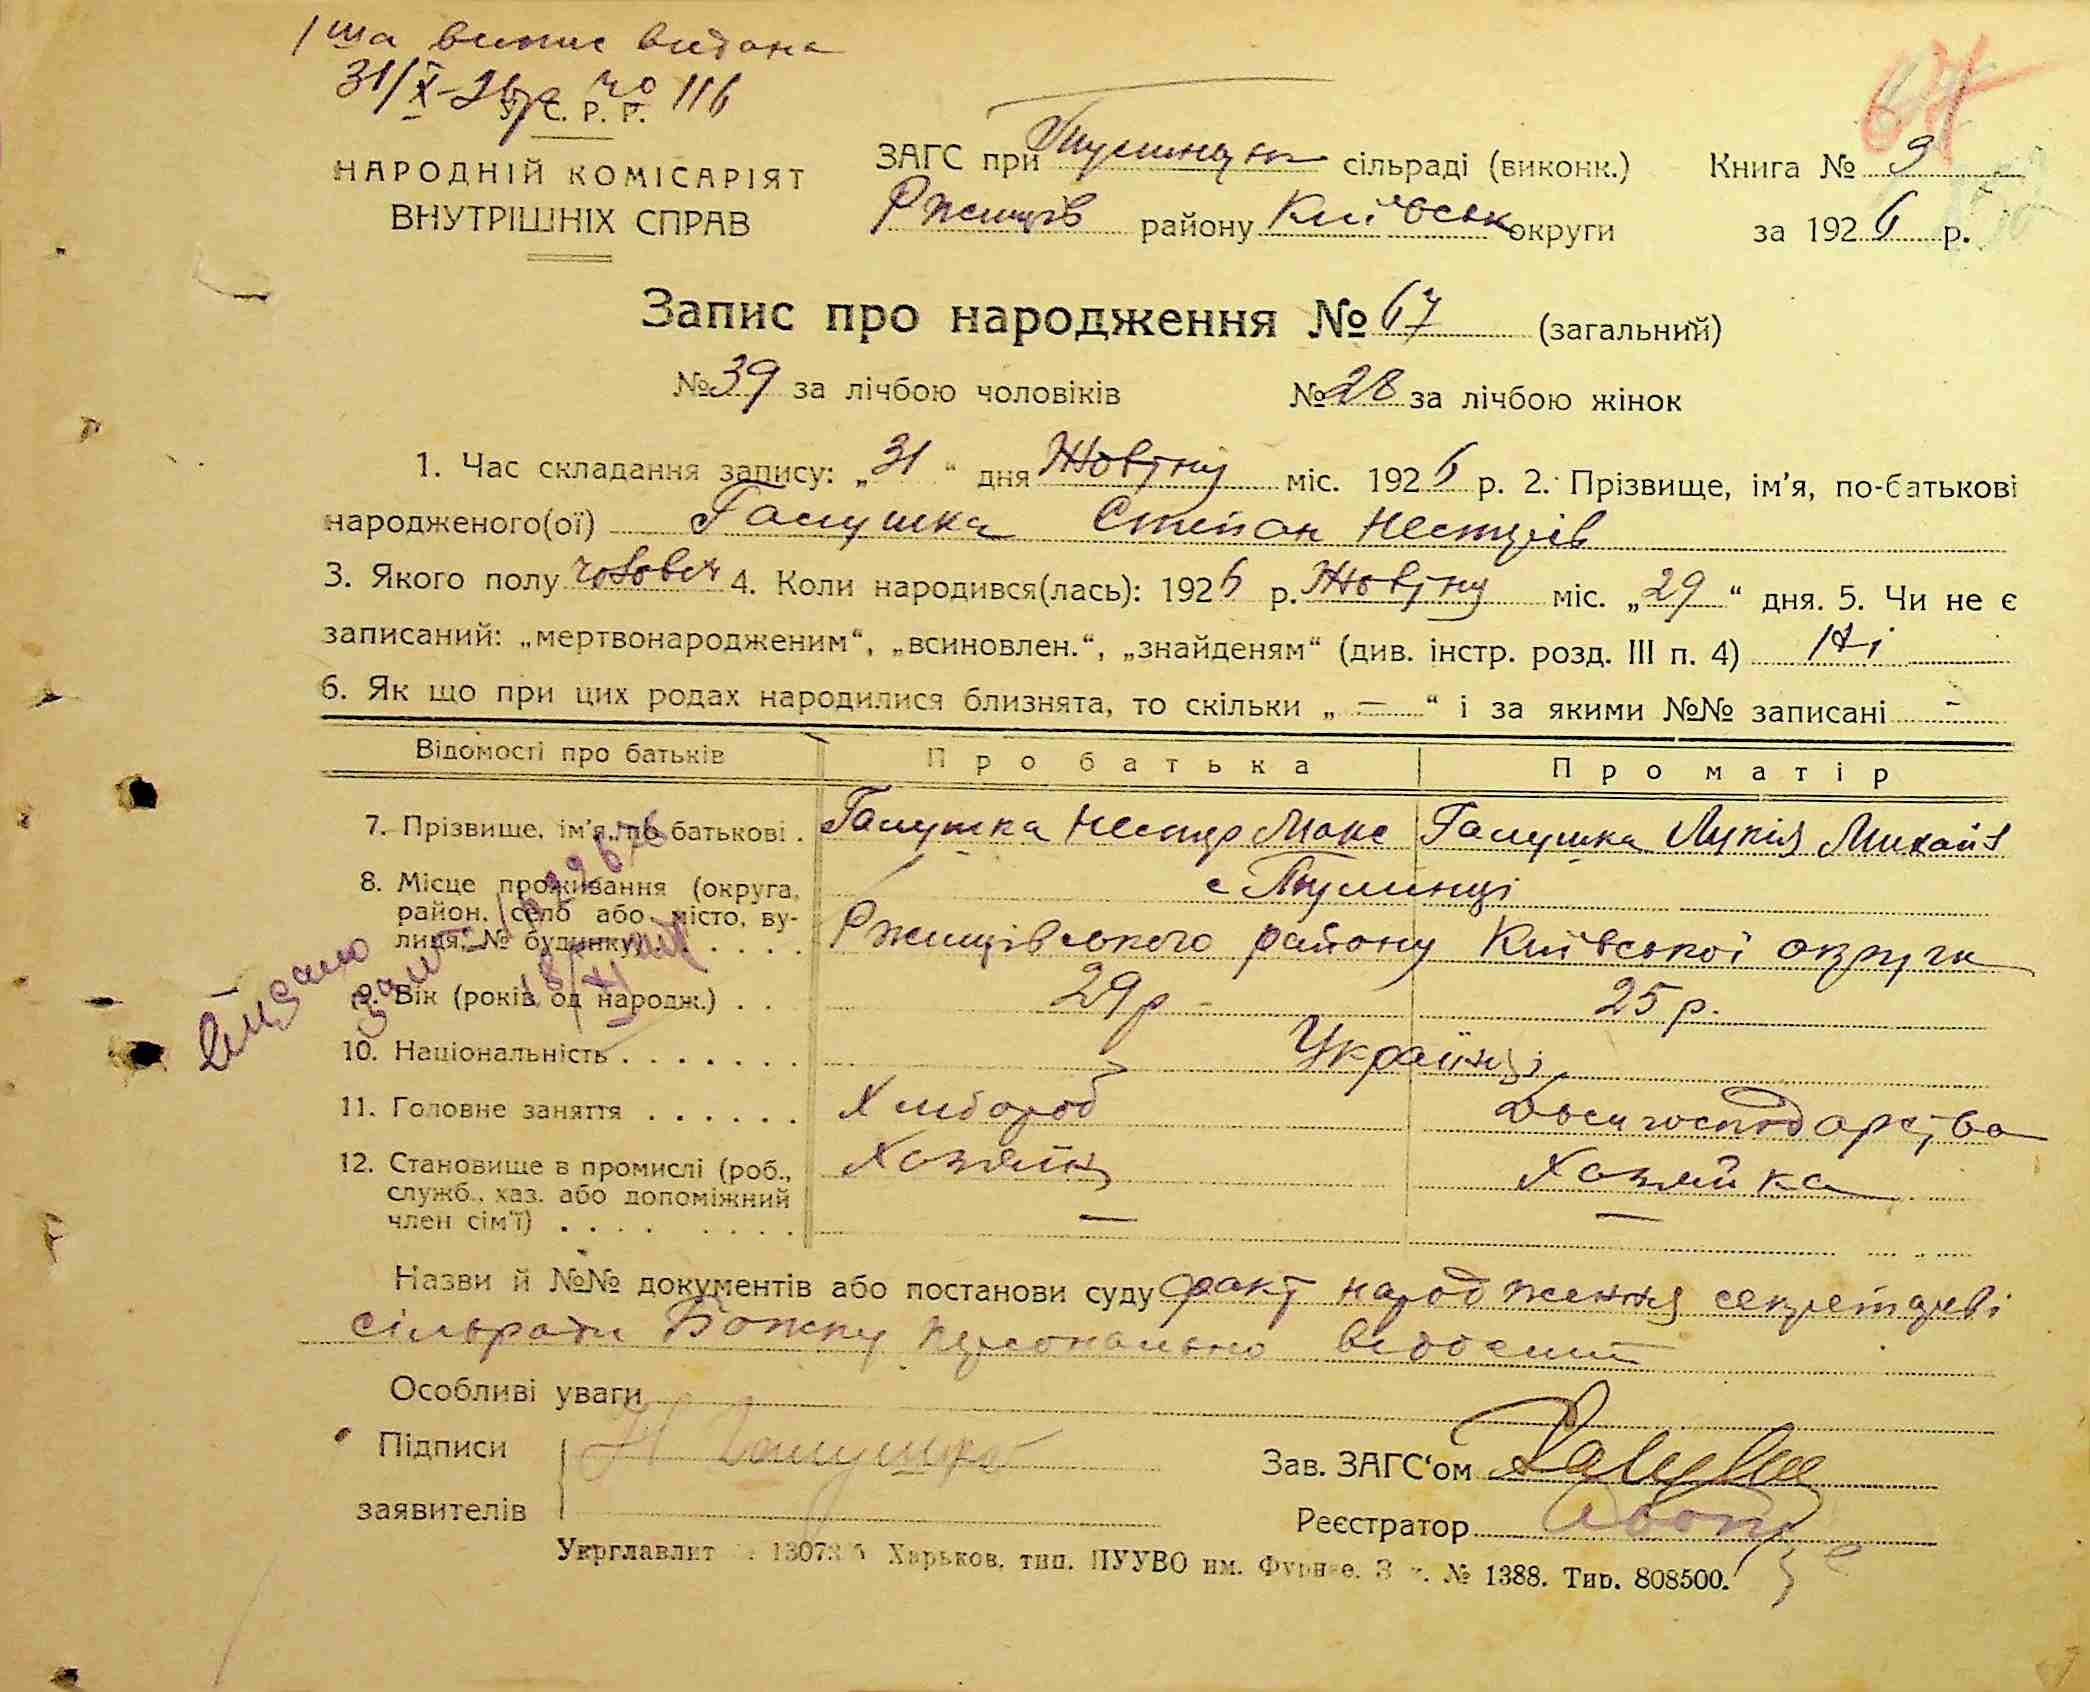 1ша випис видана
31/X-26р. № 116
У. С. Р. Р.
НАРОДНІЙ КОМІСАРІЯТ
ВНУТРІШНІХ СПРАВ
ЗАГС при сільраді (виконк.)
Ржищів району Київськ округи
Книга № 3
за 1926 р.
67
Запис про народження № 67 (загальний)
№ 39 за лічбою чоловіків № 28 за лічбою жінок
1. Час складання запису: „31“ дня Жовтню міс. 1926 р. 2. Прізвище, ім’я, по-батькові
народженого(ої) Галушка Степан Нестерів
3. Якого полу чоловіч 4. Коли народився(лась): 1926 р. Жовтню міс. „29“ дня. 5. Чи не є
записаний: „мертвонародженим“, „всиновлен.“, „знайденям“ (див. інстр. розд. III п. 4) Ні
6. Як що при цих родах народилися близнята, то скільки „ — “ і за якими №№ записані -
Відомості про батьків Про батька Про матір
7. Прізвище, ім’я, по батькові . Галушка Нестер Макс Галушка Лукія Михайл
8. Місце проживання (округа,
район, село або місто, ву-
лиця, № будинку) . . . . . Ржищівського району Київської округи
9. Вік (років од народж.) . . 29 р - 25 р.
10. Національність . . . . . . . Українці
11. Головне заняття . . . . . . Хлібороб Домогосподарство
12. Становище в промислі (роб.,
служб., хаз. або допоміжний
член сім’ї) . . . . . . . . Хозяїн Хозяйка
— —
Назви й №№ документів або постанови суду факт народження секретареві
сільради Божку персонально відомий
Особливі уваги
Підписи
заявителів
Н Галушка
Зав. ЗАГС‘ом
Реєстратор
Укрглавлит Харьков, тип. ПУУВО им. Фрунзе. № 1388. Тир. 808500.